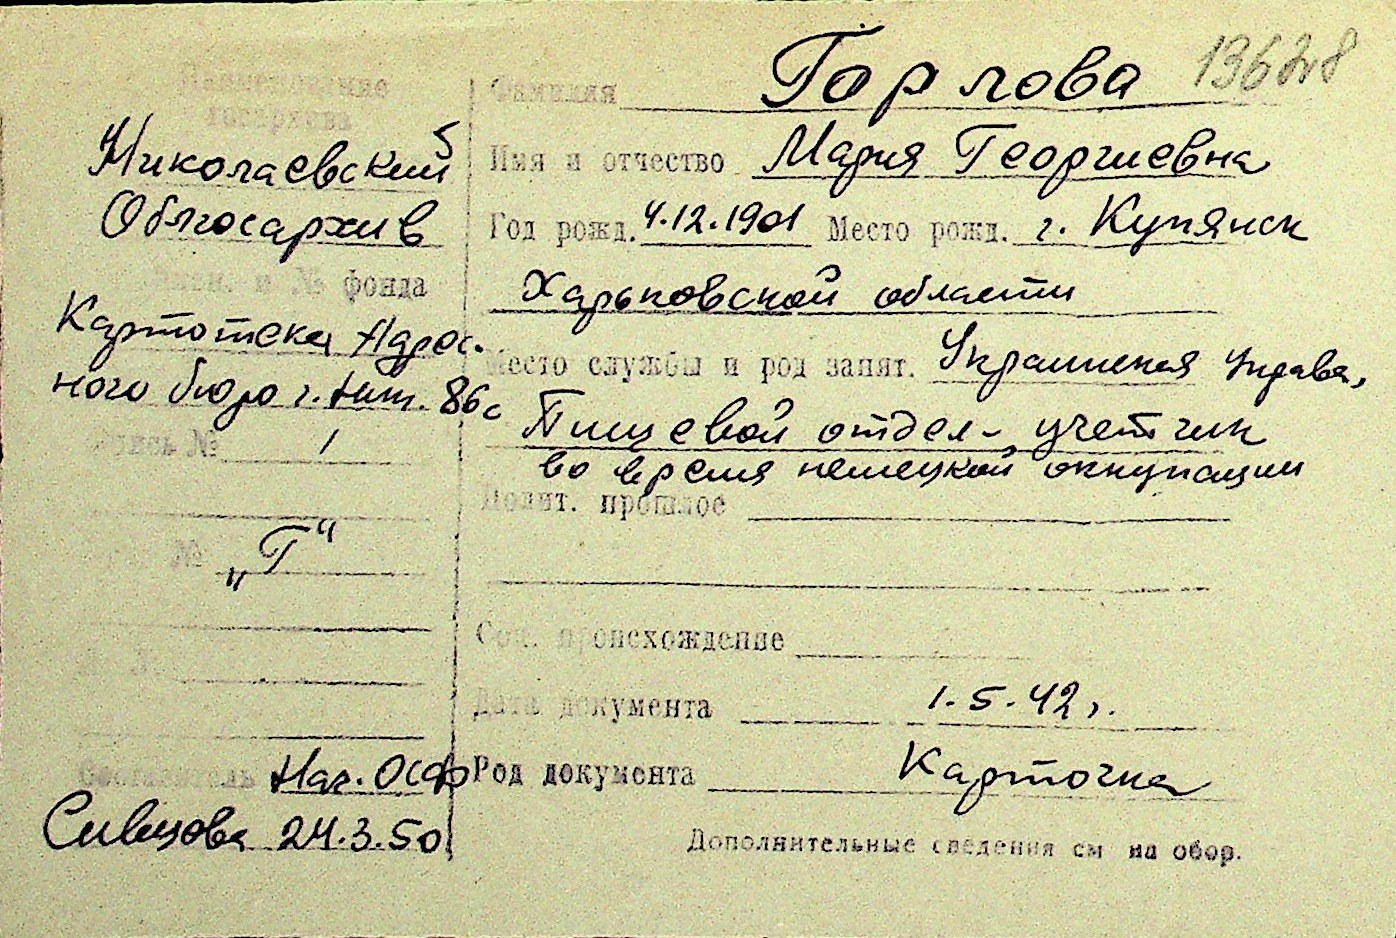 13628
Наименование
госархива
Николаевский
Облгосархив
наим. и № фонда
Картотека Адрес-
ного бюро г. Ник. 86с
Опись № 1
№ „Г“
Составитель Нач. ОСФ
Сивцова 24.3.50
Фамилия Горлова
Имя и отчество Мария Георгиевна
Год рожд. 4.12.1901 Место рожд. г. Купянск
Харьковской области
Место службы и род занят. Украинская Управа,
Пищевой отдел - учетчик
во время немецкой оккупации
Полит. прошлое
Соц. происхождение
Дата документа 1.5.42 г.
Род документа Карточка
Дополнительные сведения см на обор.